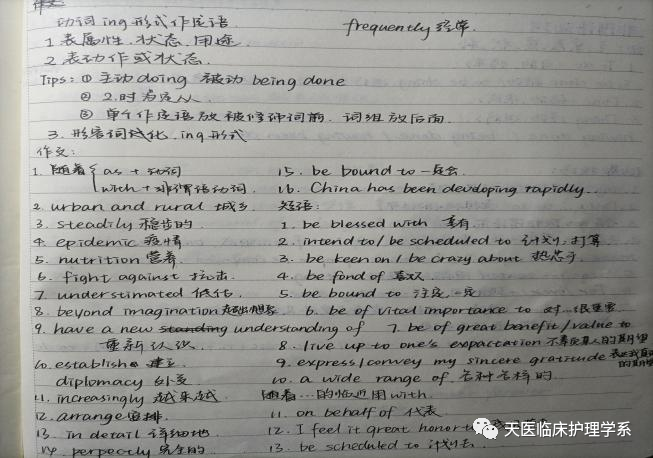 动词ing形式作定语
frequently 经常
1 表属性.状态.用途.
2 表动作或状态.
Tips: ① 主动doing 被动 being done
② 2.时为定人
③ 单个作定语放被修饰词前.词组放后面.
3. 形容词ing形式
作文:
1. 随着 as + 动词
with + 非谓语动词.
2. urban and rural 城乡
3. steadily 稳步的
4. epidemic 疫情
5. nutrition 营养
6. fight against 抗击.
7. understimated 低估.
8. beyond imagination 超出想象
9. have a new standing understanding of
重新认识.
10. establish 建立
diplomacy 外交
11. increasingly 越来越
12. arrange 安排
13. in detail 详细地
14. perpectly 完全的
15. be bound to 一定会
16. China has been devdoping rapidly.
短语:
1. be blessed with 享有
2. intend to / be scheduled to 计划.打算
3. be keen on / be crazy about 热衷于
4. be fond of 喜欢
5. be bound to 注定.一定
6. be of vital importance to 对…很重要
7. be of great benefit / value to
8. live up to one's expactation 不辜负某人的期望
9. express / convey my sincere gratitude 表达我真
10. a wide range of 各种各样的
随着…的临近用with
11. on behalf of 代表
12. I feel it great honor
13. be scheduled to 计划去
天医临床护理学系